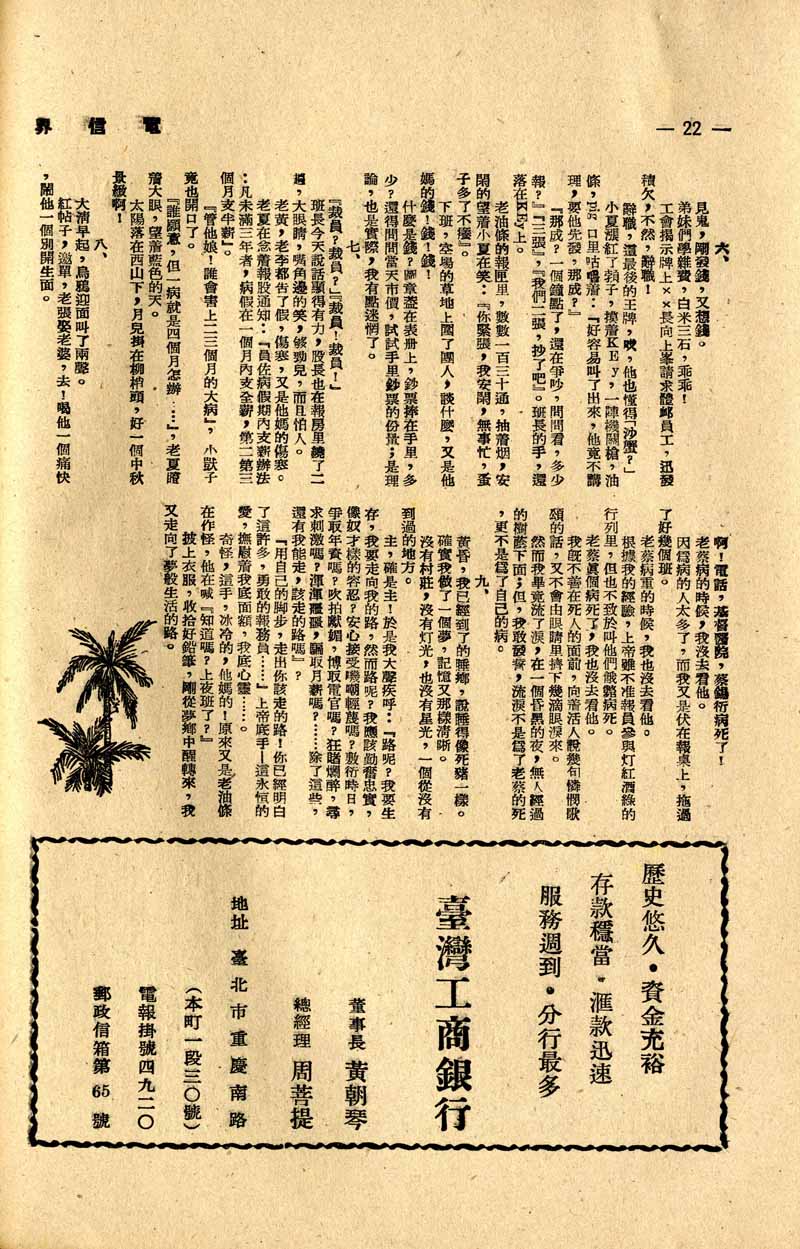 電信界
— 22 —
六、
見鬼,剛發錢,又想錢。
弟妹們學雜費,白米三石,乖乖!
工會揭示牌上××長向上峯請求體邮員工,迅發
積欠,不然,辭職!
辭職,這最後的王牌,哦,他也懂得「沙蟹?」
小夏漲紅了頸子,摸着KEy,一陣機關槍,油
條,Pig 口里咕嚕着:『好容易叫了出來,他竟不講
理,要他先發,那成?』
『那成?一個鐘點了,還在爭吵,問問看,多少
報?』『三張』,『我們二張,抄了吧』。班長的手,還
落在KEy上。
老油條的報匣里,數數一百三十通,抽着烟,安
閑的望着小夏在笑:『你緊張,我安閑,無事忙,蚤
子多了不癢』。
下班,空場的草地上圍了團人,談什麼,又是他
媽的錢!錢!錢!
什麼是錢?圖章蓋在表册上,鈔票捧在手里,多
少?還得問問當天市價,試試手里鈔票的份量;是理
論,也是實際,我有點迷惘了。
七、
『裁員?裁員?』『裁員!裁員!』
班長今天說話顯得有力,股長也在報房里繞了二
趟,大眼睛,嘴角邊的笑,够勁兒,而且怕人。
老黃,老李都吿了假,傷寒,又是他媽的傷寒。
老夏在念着報股通知:『員佐病假期內支薪辦法
:凡未滿三年者,病假在一個月內支全薪,第二第三
個月支半薪』。
『管他娘!誰會害上二三個月的大病』,小獃子
竟也開口了。
『誰願意,但一病就是四個月怎辦……』,老夏瞪
着大眼,望着藍色的天。
太陽落在西山下,月兒掛在柳梢頭,好一個中秋
景緻啊!
八、
大淸早起,烏鴉迎面叫了兩聲。
紅帖子,邀單,老張娶老婆,去!喝他一個痛快
,鬧他一個別開生面。
啊!電話,基督醫院,蔡錫衍病死了!
老蔡病的時候,我沒去看他。
因爲病的人太多了,而我又是伏在報桌上,拖過
了好幾個班。
老蔡病重的時候,我也沒去看他。
根據我的經驗,上帝雖不准報員參與灯紅酒綠的
行列里,但也不致於叫他們餓骼病死。
老蔡眞個病死了,我也沒去看他。
我旣不善在死人的面前,向着活人說幾句憐憫歌
頌的話,又不會由眼睛里擠下幾滴眼淚來。
然而我畢竟流了淚,在一個昏黑的夜,無人經過
的樹蔭下面;但,我敢發誓,流淚不是爲了老蔡的死
,更不是爲了自己的病。
九、
黃昏,我已經到了的睡鄉,說睡得像死豬一樣。
確實我做了一個夢,記憶又那樣淸晰。
沒有村莊,沒有灯光,也沒有星光,一個從沒有
到過的地方。
主,確是主!於是我大聲疾呼:『路呢?我要生
存,我要走向我的路,然而路呢?我應該勤奮忠實,
像奴才樣的容忍?安心接受嘰嘲輕蔑嗎?敷衍時日,
爭取年資嗎?吹拍獻媚,博取電官嗎?狂賭爛醉,尋
求刺激嗎?渾渾噩噩,騙取月薪嗎?……除了這些,
還有我能走,該走的路嗎』?
『用自己的脚步,走出你該走的路!你已經明白
了這許多,勇敢的報務員……』上帝底手—這永恒的
愛,撫慰着我底面額,我底心靈……。
奇怪,這手,冰冷的,他媽的!原來又是老油條
在作怪,他在喊『知道嗎?上夜班了?』
披上衣服,收拾好鉛筆,剛從夢鄉中醒轉來,我
又走向了夢般生活的路。
歷史悠久・資金充裕
存款穩當・滙款迅速
服務週到・分行最多
臺灣工商銀行
董事長 黃朝琴
總經理 周菩提
地址 臺北市重慶南路
(本町一段三〇號)
電報掛號四九二〇
郵政信箱第65號